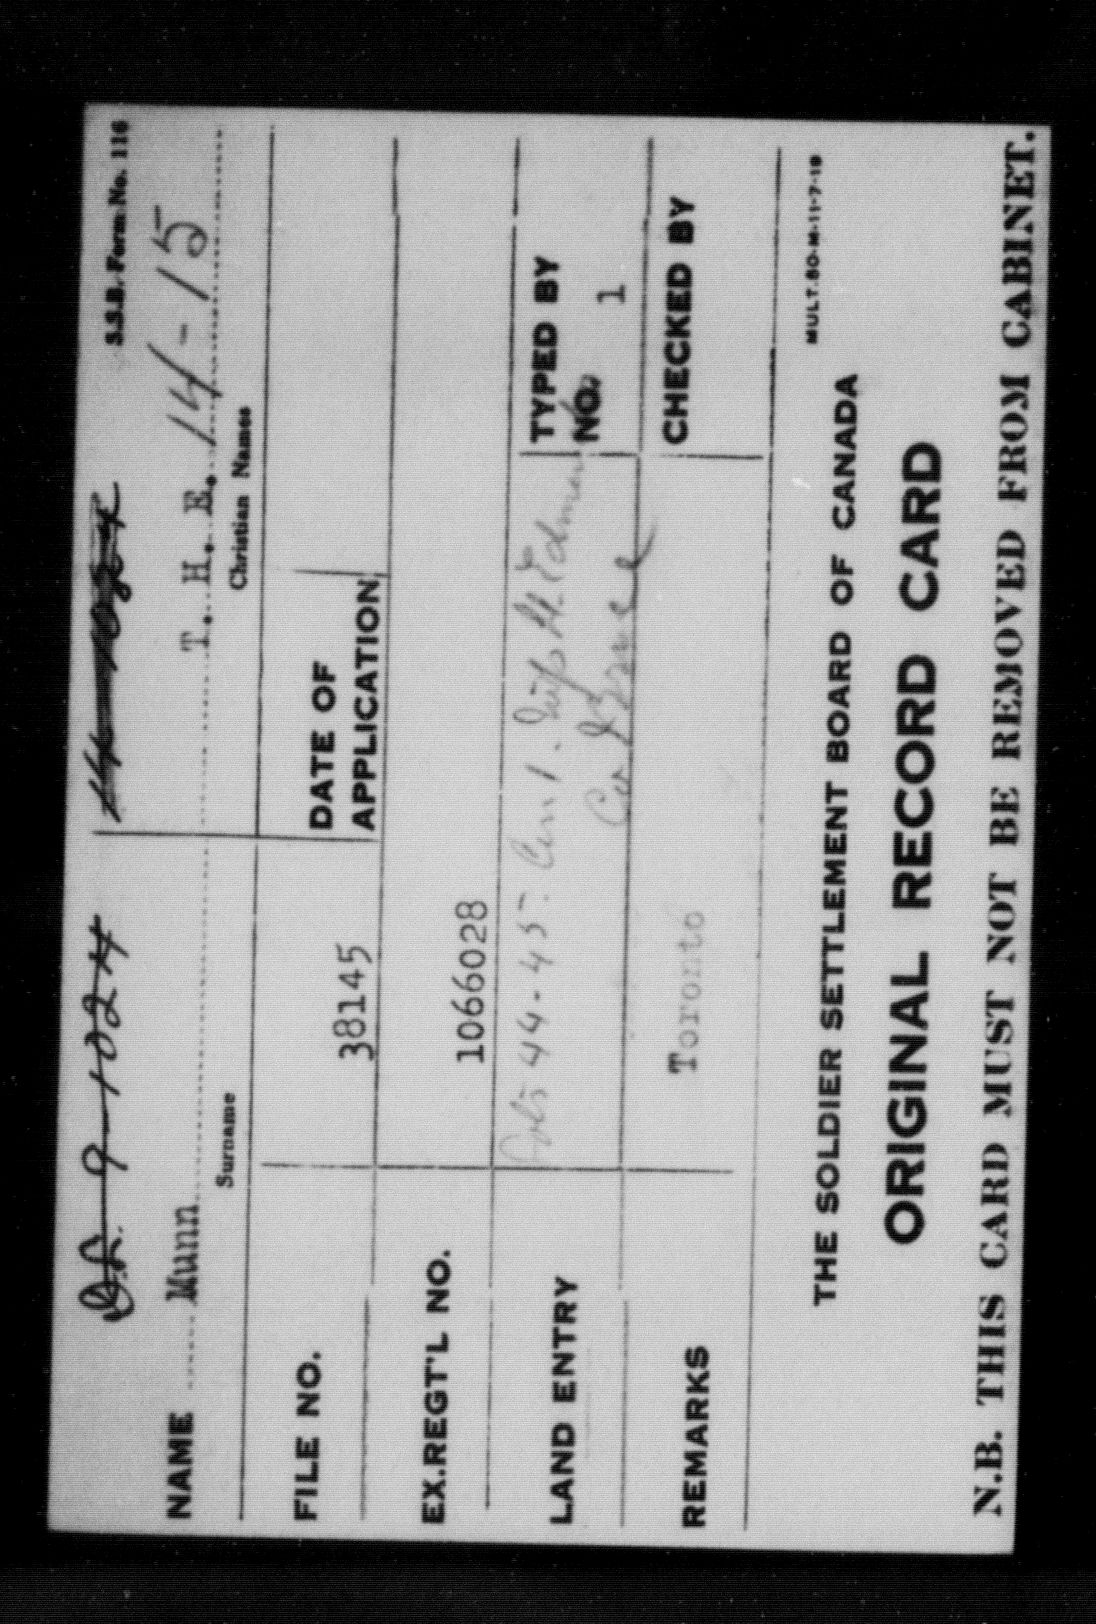 D.L. 9-1024
S.S.B. Form No. 116
NAME Munn T. H. E. 14-15
Surname Christian Names
FILE NO. 38145 DATE OF APPLICATION
EX.REGT'L NO. 1066028
LAND ENTRY Lots 44-45. Con 1. Twp H. Edmans
Co Bruce
TYPED BY
NO. 1
REMARKS Toronto CHECKED BY
MULT.80-M-11-7-19
THE SOLDIER SETTLEMENT BOARD OF CANADA
ORIGINAL RECORD CARD
N.B. THIS CARD MUST NOT BE REMOVED FROM CABINET.